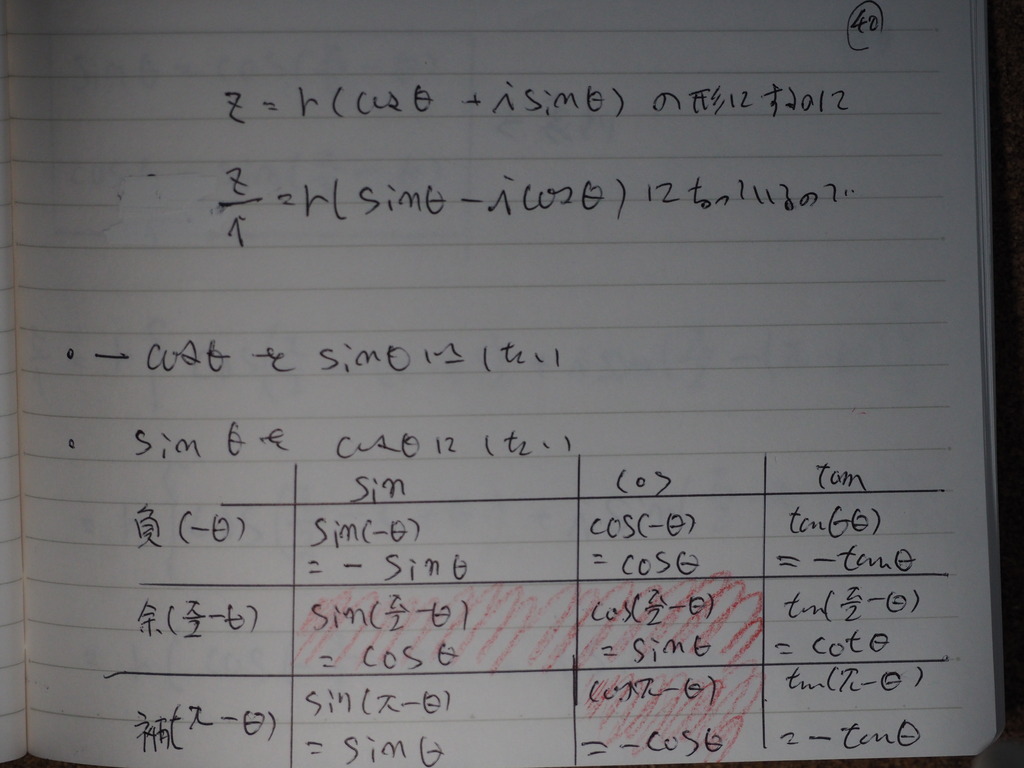 40
z = r(cosθ + i sinθ) の形にするのに
z/i = r(sinθ - i cosθ) になっているので
・ - cosθ を sinθ にしたい
・ sinθ を cosθ にしたい
sin cos tan
負(-θ) sin(-θ) = - sinθ cos(-θ) = cosθ tan(-θ) = - tanθ
余(π/2-θ) sin(π/2-θ) = cosθ cos(π/2-θ) = sinθ tan(π/2-θ) = cotθ
補(π-θ) sin(π-θ) = sinθ cos(π-θ) = -cosθ tan(π-θ) = - tanθ